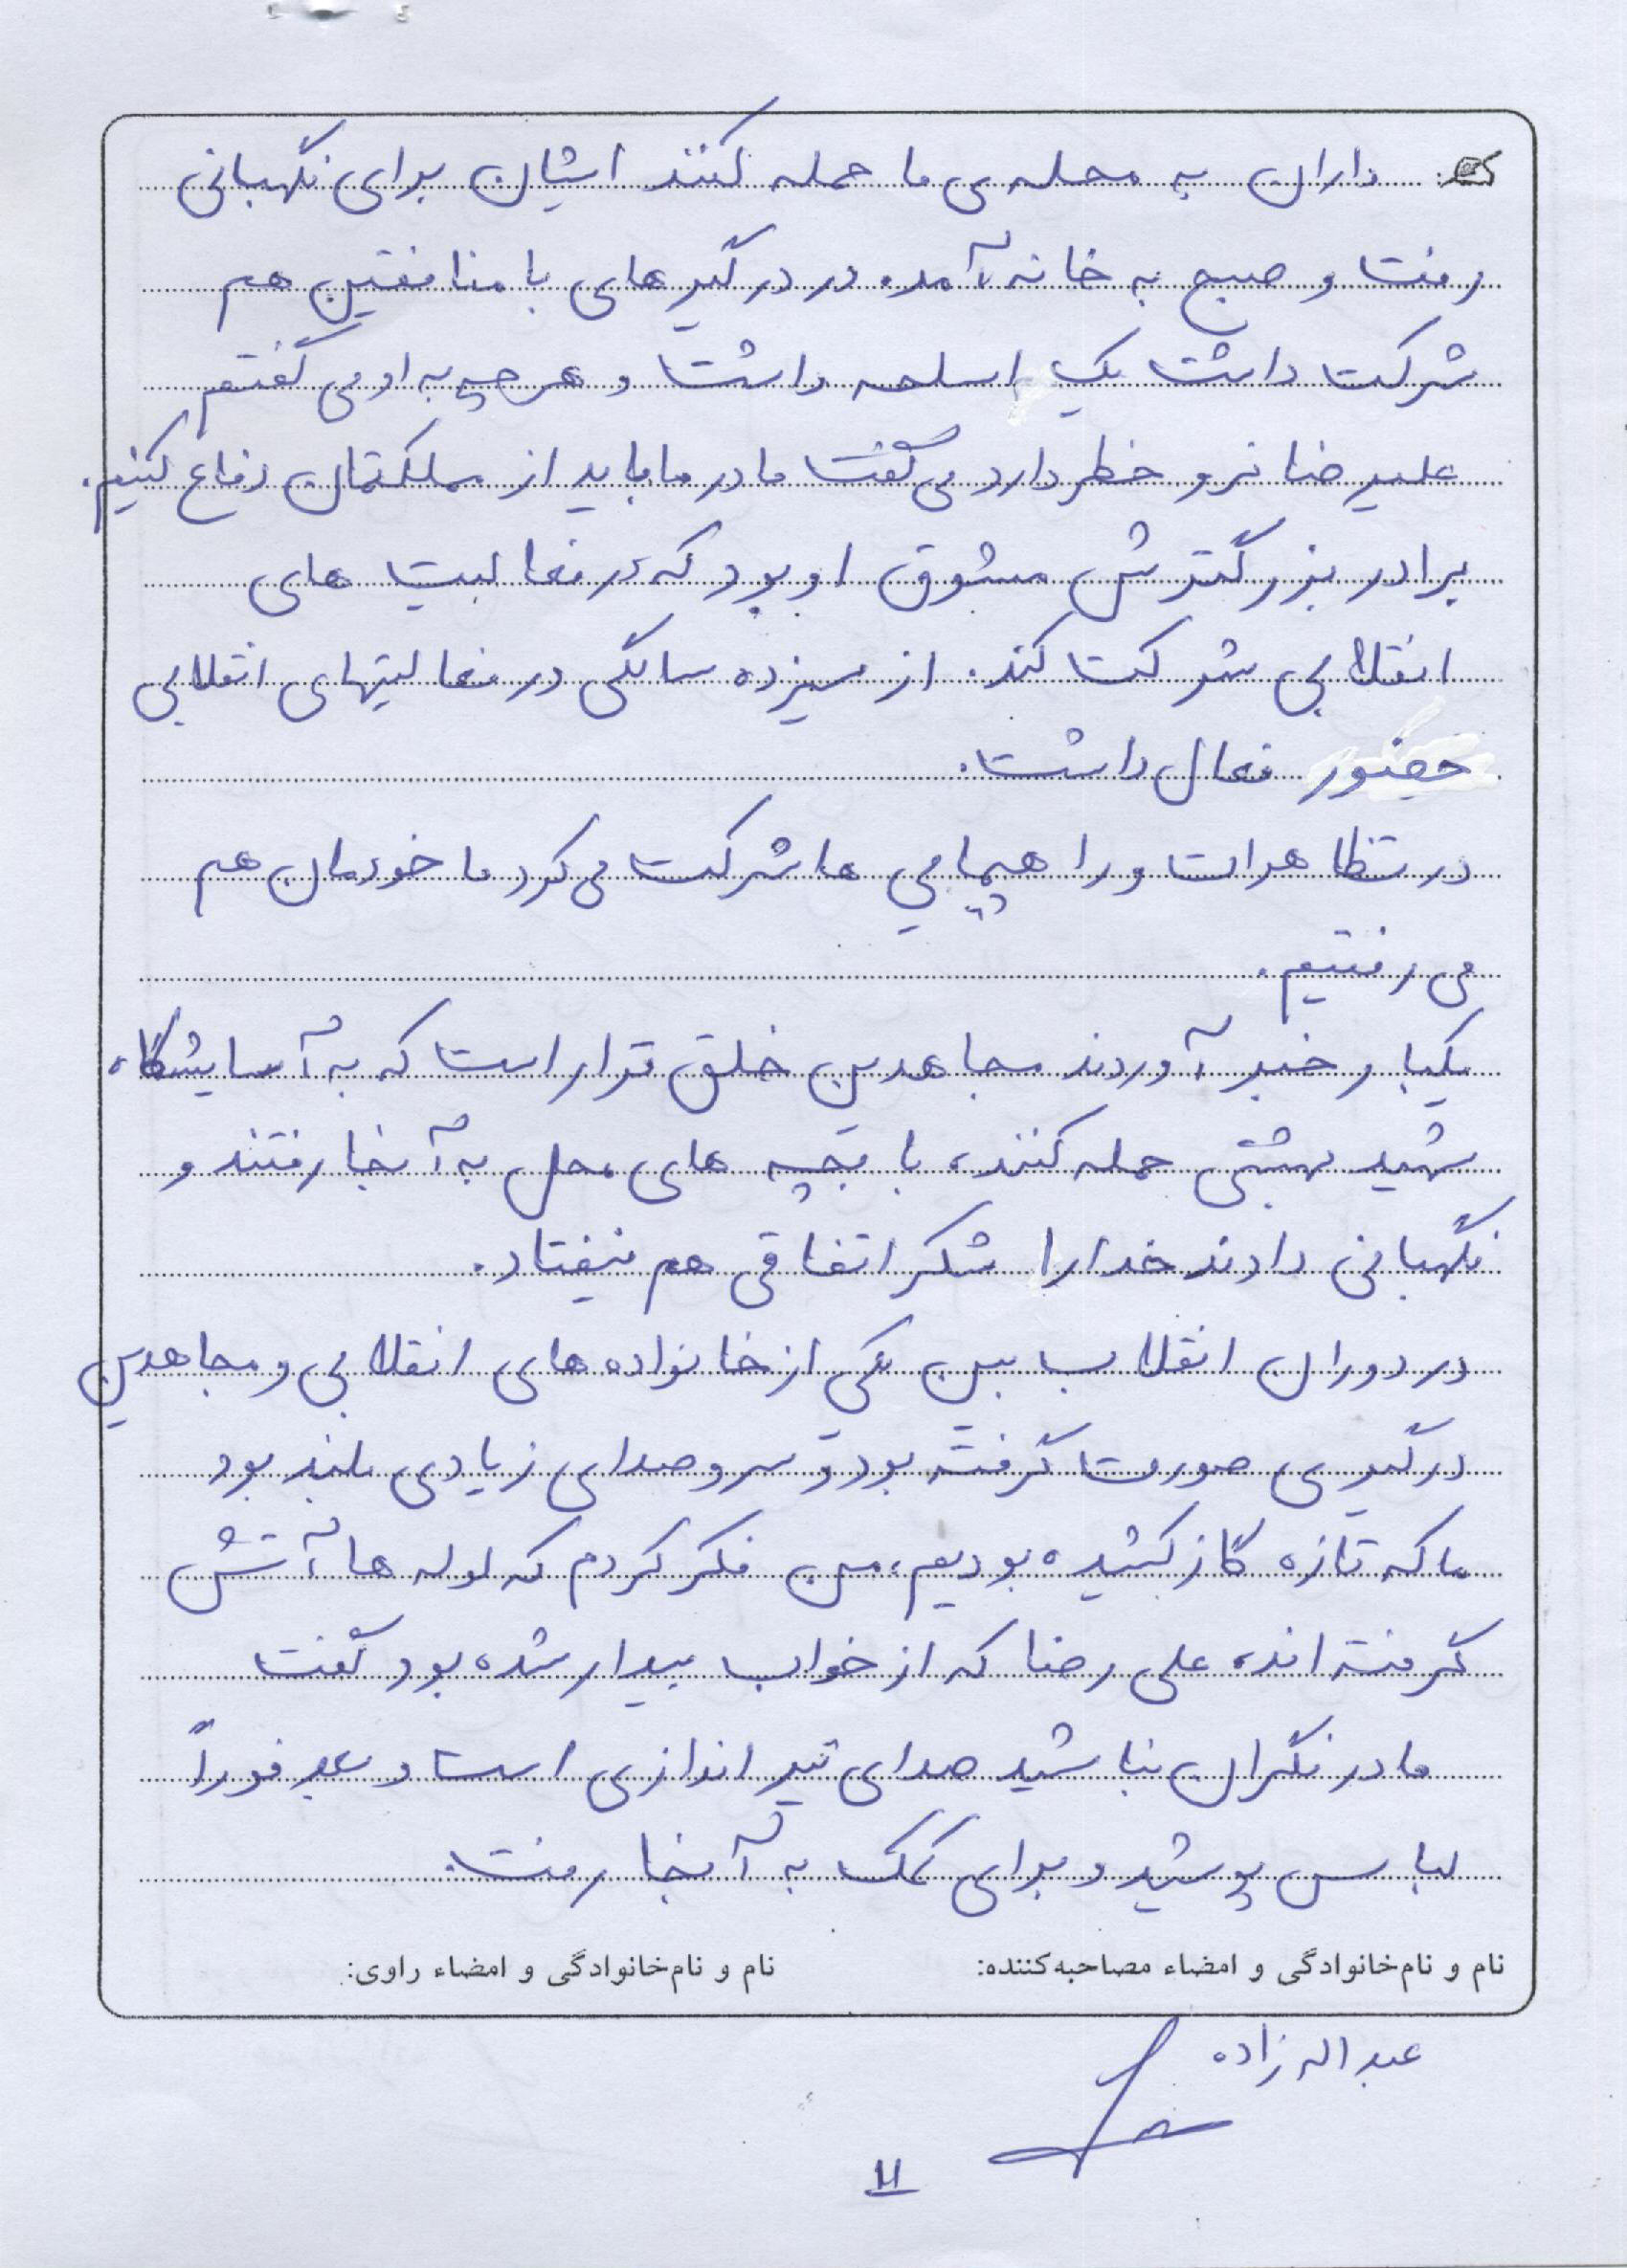 داران به محله‌ی ما حمله کنند ایشان برای نگهبانی
رفت و صبح به خانه آمد. در درگیرهای با منافقین هم
شرکت داشت یک اسلحه داشت و هر چه به او می گفتم
علیرضا نرو خطر دارد می گفت مادر ما باید از مملکتمان دفاع کنیم.
برادر بزرگترش مشوق او بود که در فعالیت های
انقلابی شرکت کند. از سیزده سالگی در فعالیتهای انقلابی
حضور فعال داشت.
در تظاهرات و راهپیمایی ها شرکت می کرد ما خودمان هم
می رفتیم.
یکبار خبر آوردند مجاهدین خلق قرار است که به آسایشگاه
شهید بهشتی حمله کنند، با بچه های محل به آنجا رفتند و
نگهبانی دادند خدا را شکر اتفاقی هم نیفتاد.
در دوران انقلاب بین یکی از خانواده های انقلابی و مجاهدین
درگیری صورت گرفته بود و سر و صدای زیادی بلند بود
ما که تازه گاز کشیده بودیم، من فکر کردم که لوله ها آتش
گرفته اند، علی رضا که از خواب بیدار شده بود گفت
مادر نگران نباشید صدای تیراندازی است و بعد فوراً
لباس پوشید و برای کمک به آنجا رفت.
نام و نام‌خانوادگی و امضاء مصاحبه‌کننده: نام و نام‌خانوادگی و امضاء راوی:
عبداله زاده
۱۱